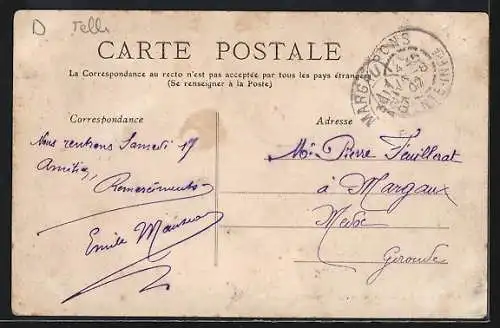 D Tell
CARTE POSTALE
La Correspondance au recto n'est pas acceptée par tous les pays étrangers
(Se renseigner à la Poste)
MARGAUX
PONS
Correspondance
Adresse
Nous rentrons Samedi 17
Amitiés,
Remerciements
Emile
Mr. Pierre Feuillerat
à Margaux
Medoc
Gironde